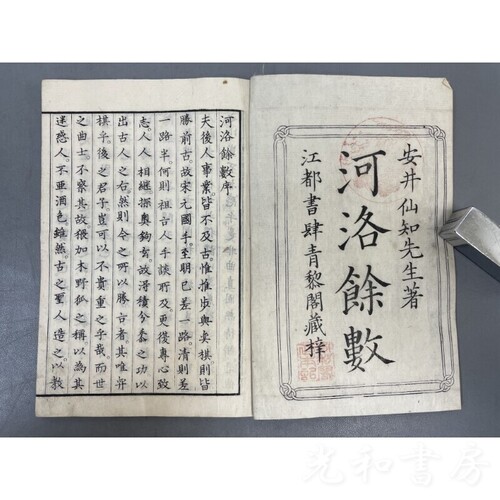 安井仙知先生著
河洛餘數
江都書肆青黎閣藏梓
河洛餘數序
夫後人事業皆不及古惟推步與奕棋則皆
勝前古故宋元國手至明已差一路清則差
一路半何則祖古人手談所及更復專心致
志人人相繼探奧鉤旨故淂積分黍之功以
出古人之右然則今之所以勝古者其唯弈
棋乎後之君子豈可以不重之乎哉而世
之曲士不察其故猥加木野狐之稱以為其
迷惑人不亜酒色雖然古之聖人造之以教
光和書房